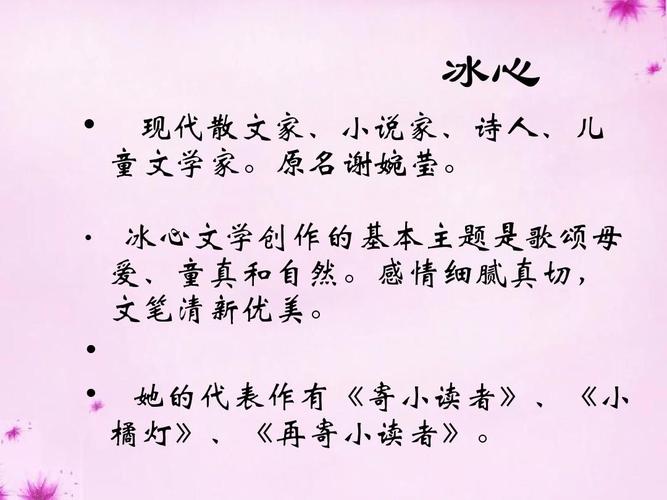 冰心
• 现代散文家、小说家、诗人、儿
童文学家。原名谢婉莹。
• 冰心文学创作的基本主题是歌颂母
爱、童真和自然。感情细腻真切，
文笔清新优美。
•
• 她的代表作有《寄小读者》、《小
橘灯》、《再寄小读者》。